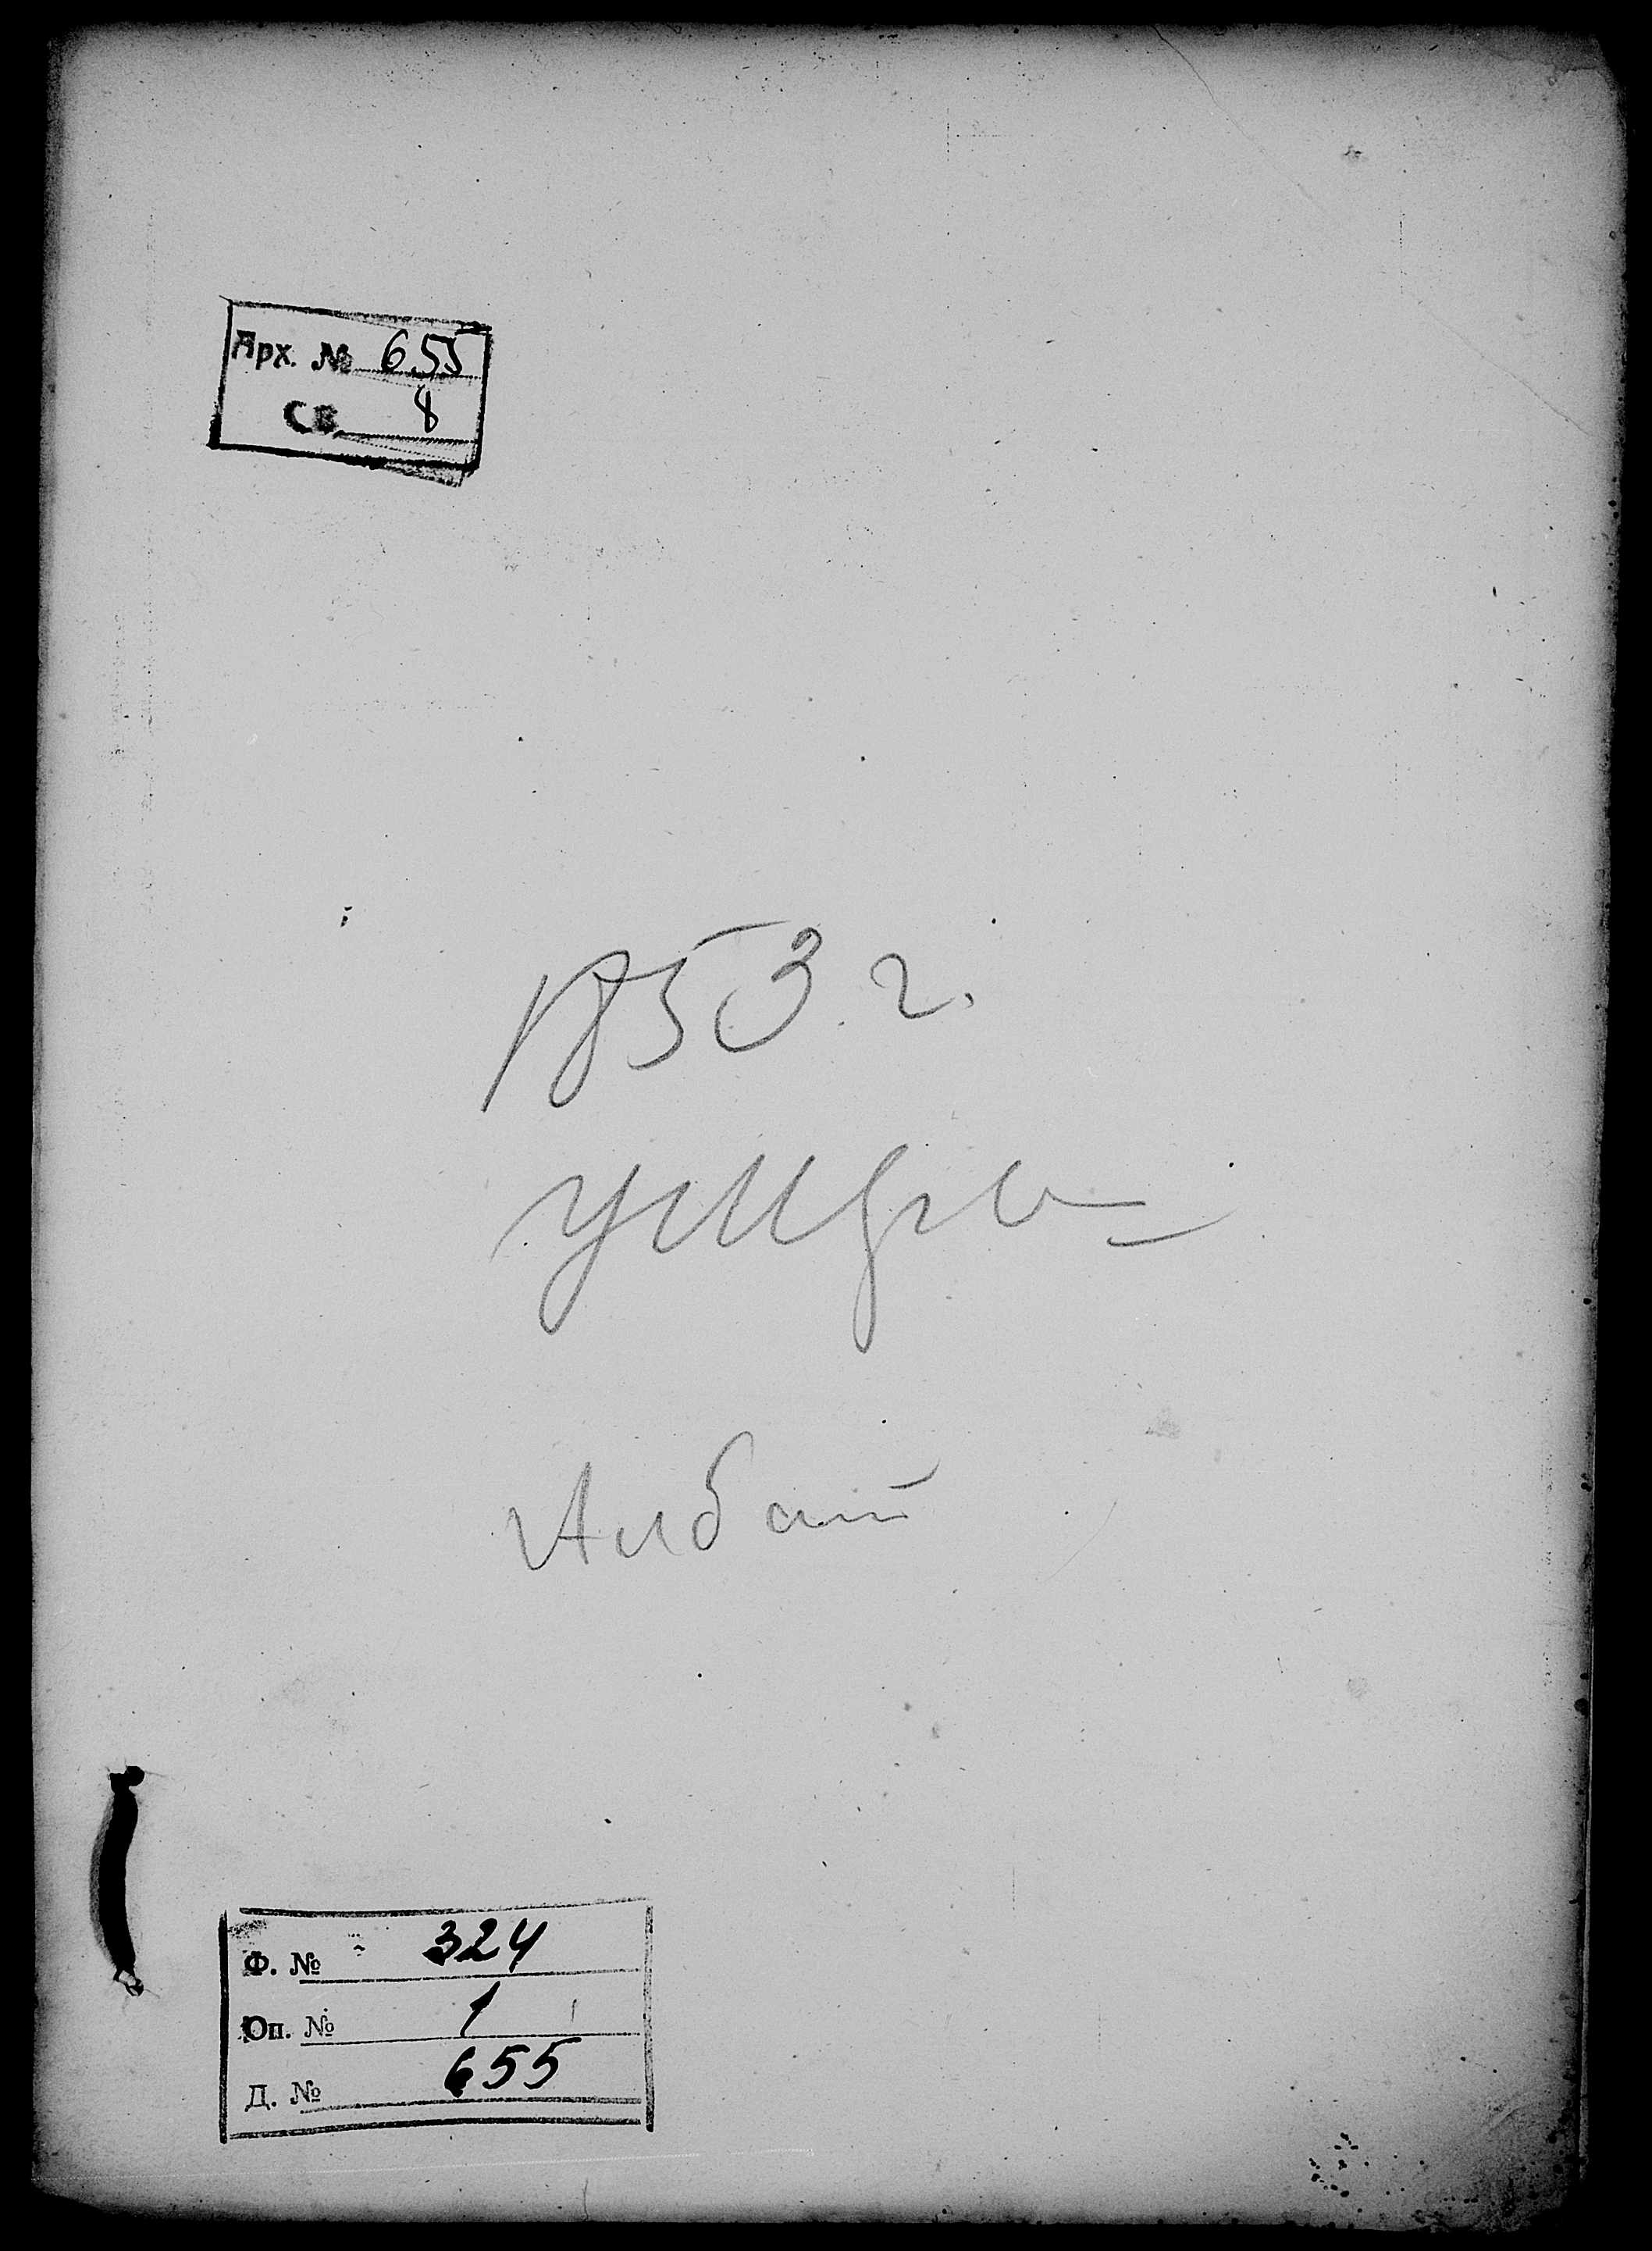 Арх. № 655
Св. 8
1853 г.
Албат
Ф. № 324
Оп. № 1
Д. № 655